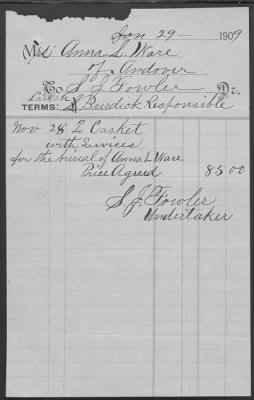 Jan 29 1909
Mrs Anna L. Ware
of Andover
To S J Fowler Dr.
TERMS: Burdick Responsible
Nov 28 To Casket
with Services
for the burial of Anna L Ware
Price Agreed 85 00
S. J. Fowler
Undertaker